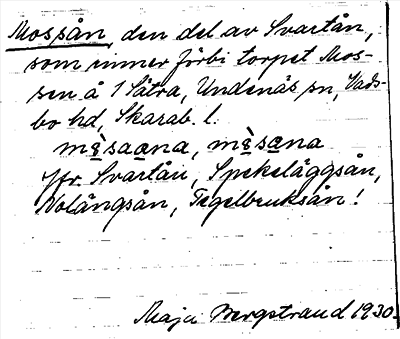 Mosån, den del av Svartån,
som rinner förbi torpet Mos-
sen å 1 Sätra, Undenäs sn, Vads-
bo hd, Skarab. l.
Jfr. Svartån, Spekeläggsån,
Kolängsån, Tegelbruksån!
Maja Bergstrand 1930.